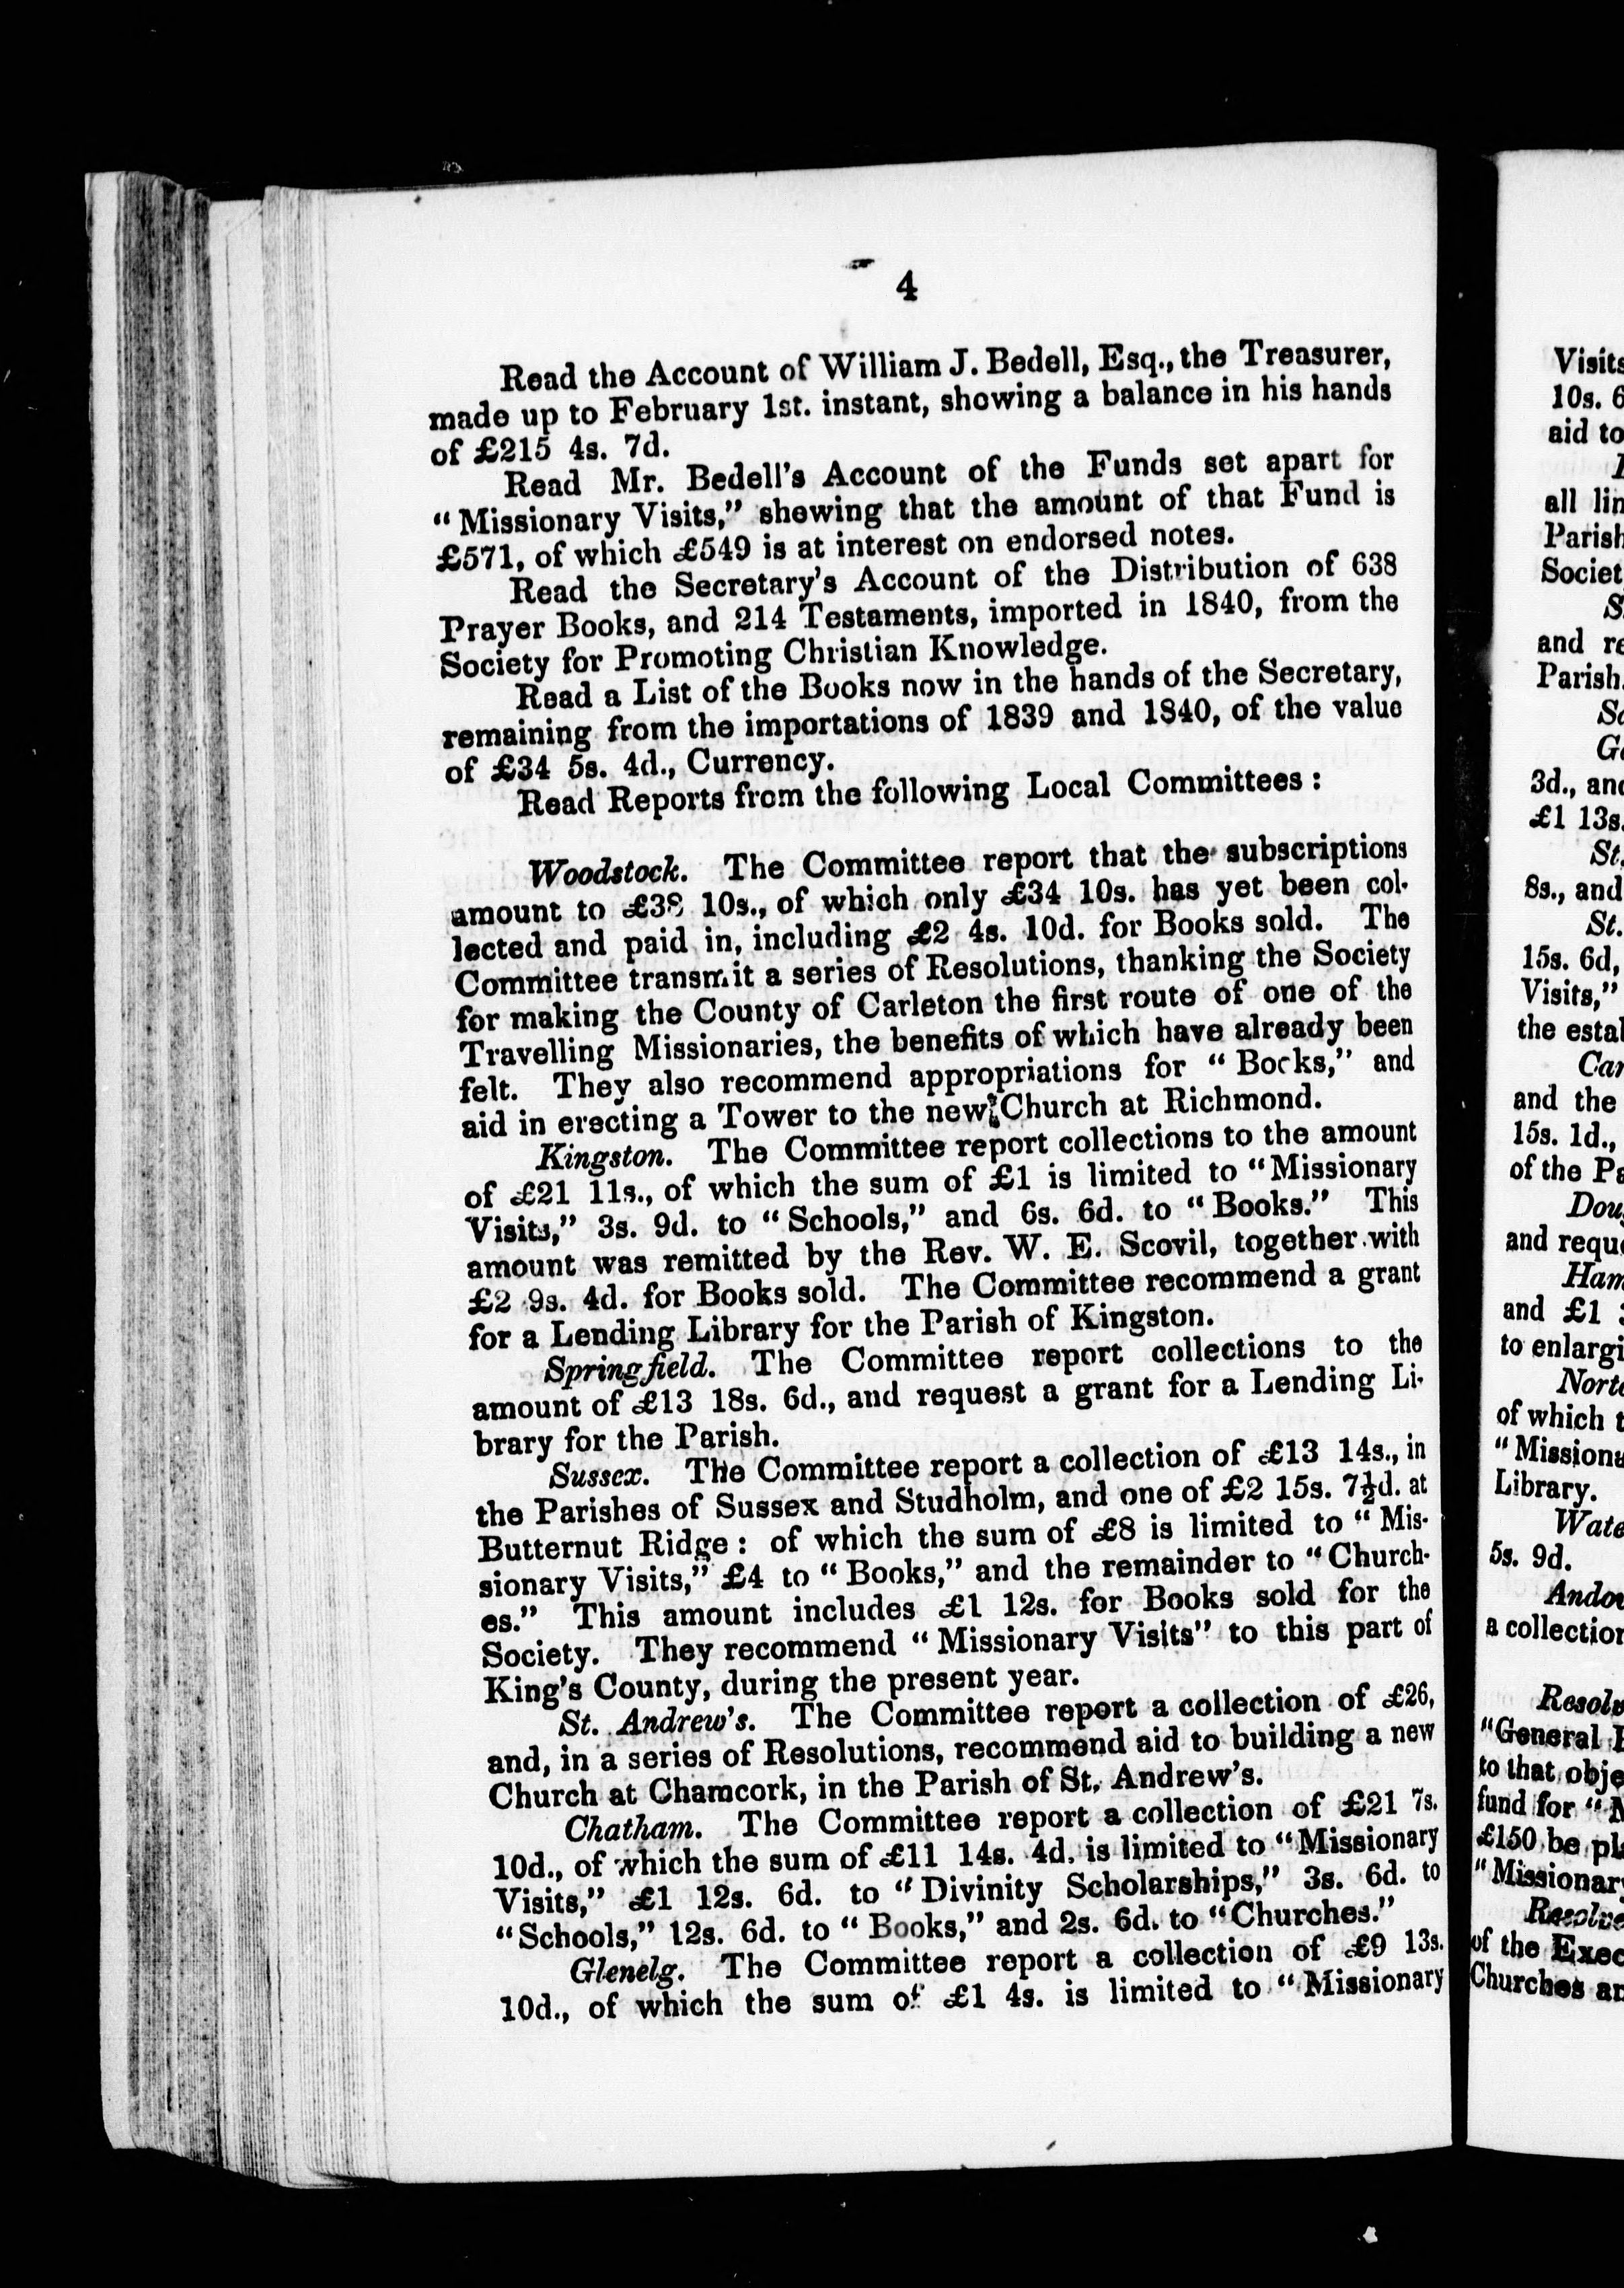 4
Read the Account of William J. Bedell, Esq., the Treasurer,
made up to February 1st. instant, showing a balance in his hands
of £215 4s. 7d.
Read Mr. Bedell's Account of the Funds set apart for
"Missionary Visits," shewing that the amount of that Fund is
£571, of which £549 is at interest on endorsed notes.
Read the Secretary's Account of the Distribution of 638
Prayer Books, and 214 Testaments, imported in 1840, from the
Society for Promoting Christian Knowledge.
Read a List of the Books now in the hands of the Secretary,
remaining from the importations of 1839 and 1840, of the value
of £34 5s. 4d., Currency.
Read Reports from the following Local Committees :
Woodstock. The Committee report that the subscriptions
amount to £38 10s., of which only £34 10s. has yet been col-
lected and paid in, including £2 4s. 10d. for Books sold. The
Committee transmit a series of Resolutions, thanking the Society
for making the County of Carleton the first route of one of the
Travelling Missionaries, the benefits of which have already been
felt. They also recommend appropriations for "Books," and
aid in erecting a Tower to the new Church at Richmond.
Kingston. The Committee report collections to the amount
of £21 11s., of which the sum of £1 is limited to "Missionary
Visits," 3s. 9d. to "Schools," and 6s. 6d. to "Books." This
amount was remitted by the Rev. W. E. Scovil, together with
£2 9s. 4d. for Books sold. The Committee recommend a grant
for a Lending Library for the Parish of Kingston.
Springfield. The Committee report collections to the
amount of £13 18s. 6d., and request a grant for a Lending Li-
brary for the Parish.
Sussex. The Committee report a collection of £13 14s., in
the Parishes of Sussex and Studholm, and one of £2 15s. 7½d. at
Butternut Ridge : of which the sum of £8 is limited to "Mis-
sionary Visits," £4 to "Books," and the remainder to "Church-
es." This amount includes £1 12s. for Books sold for the
Society. They recommend "Missionary Visits" to this part of
King's County, during the present year.
St. Andrew's. The Committee report a collection of £26,
and, in a series of Resolutions, recommend aid to building a new
Church at Chamcork, in the Parish of St. Andrew's.
Chatham. The Committee report a collection of £21 7s.
10d., of which the sum of £11 14s. 4d. is limited to "Missionary
Visits," £1 12s. 6d. to "Divinity Scholarships," 3s. 6d. to
"Schools," 12s. 6d. to "Books," and 2s. 6d. to "Churches."
Glenelg. The Committee report a collection of £9 13s.
10d., of which the sum of £1 4s. is limited to "Missionary
Visits
10s. 6
aid to
all lin
Parish
Societ
S
and re
Parish.
So
G
3d., and
£1 13s.
St.
8s., and
St.
15s. 6d,
Visits,"
the estal
Car
and the
15s. 1d.,
of the Pa
Dou
and reque
Ham
and £1
to enlargi
Norto
of which t
"Missiona
Library.
Wate
5s. 9d.
Andov
a collection
Resolv
"General
to that obje
fund for "
£150 be pla
"Missionary
Resolve
of the Exec
Churches an